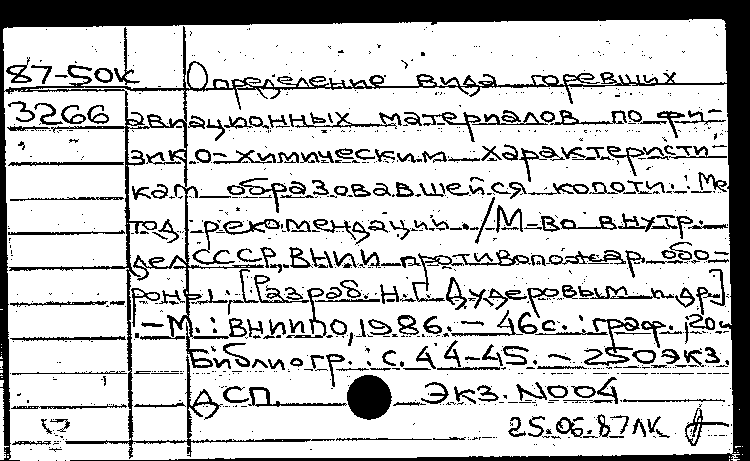 87-50К Определение вида горевших
3266 авиационных материалов по фи-
зико-химическим характеристи-
кам образовавшейся копоти. : Ме
тод. рекомендации. / М-во внутр.
дел СССР, ВНИИ противопожар. обо-
роны ; [Разраб. Н.Г. Дудеровым и др.]
. - М. : ВНИИПО, 1986. - 46 с. : граф. ; 20
Библиогр. : с. 44-45. - 250 экз.
ДСП. Экз. N004
25.06.87 ЛК